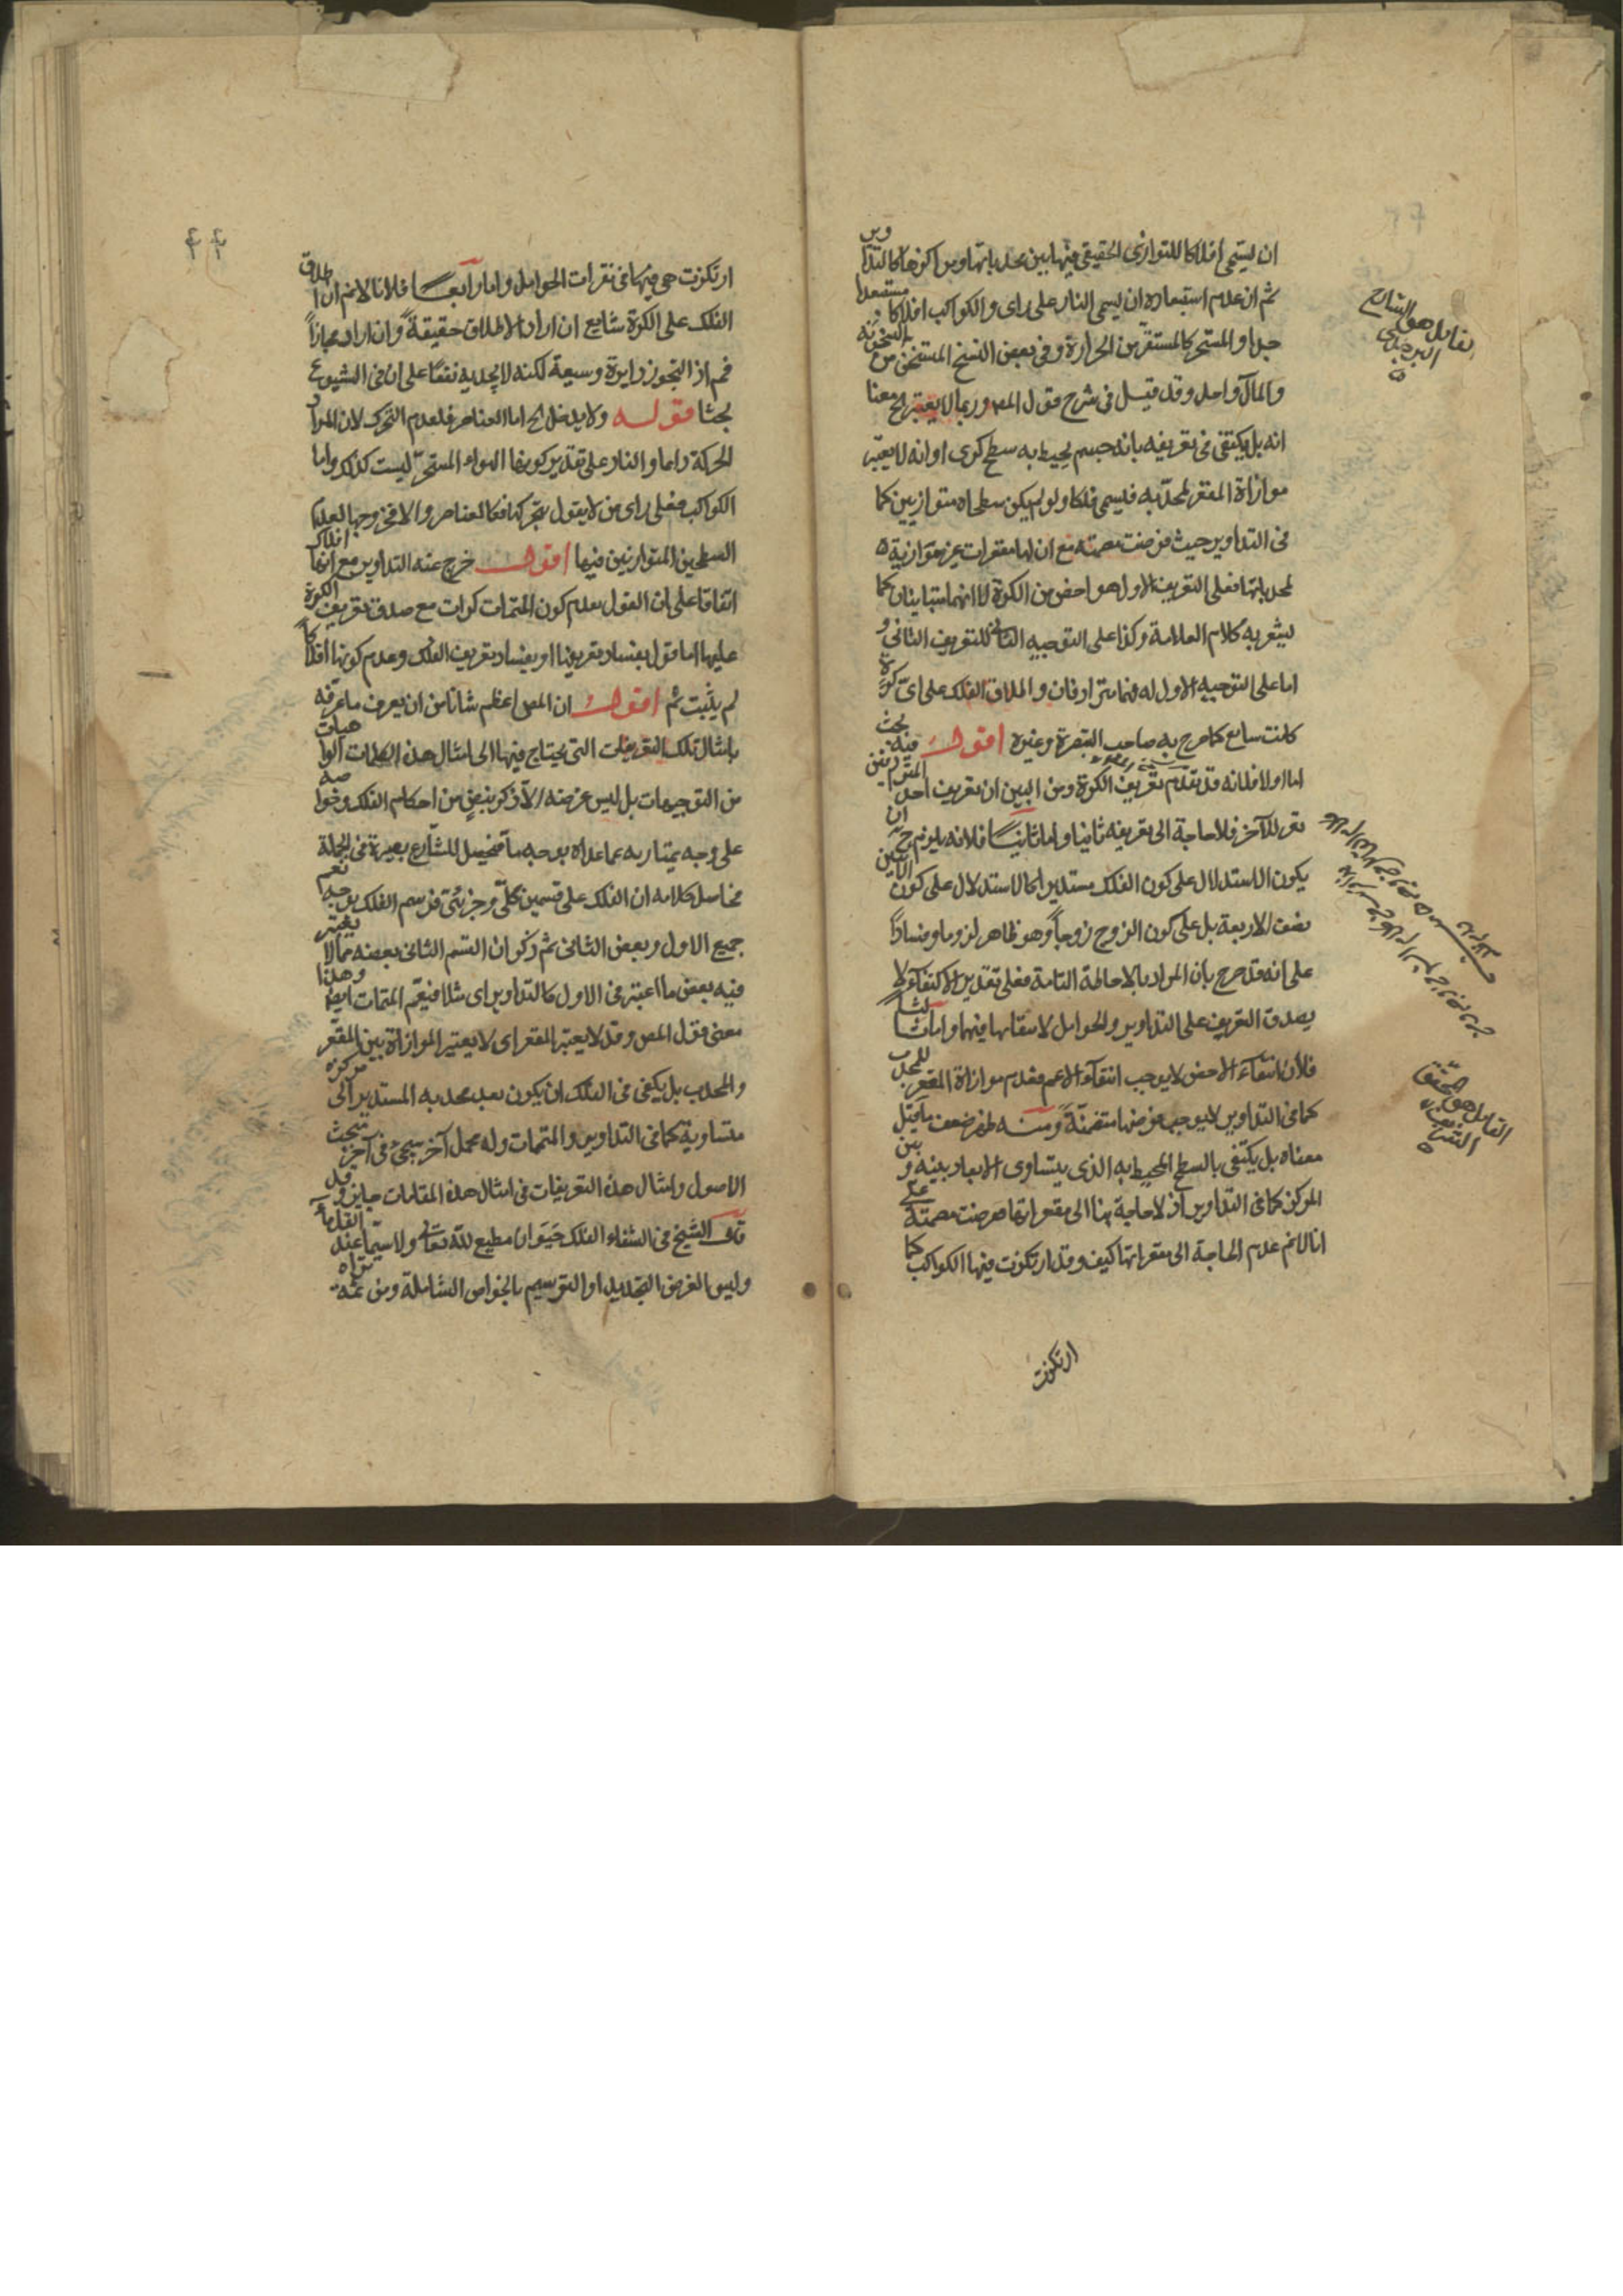 ان يسمى افلاكا للتوازى الحقيقى فيها بين محدباتها ومراكزها كالتداوير
ثم ان عدم استبعاده ان يسمى النار على راى والكواكب افلاكا مستبعد
جدا و المستحر كالمستقر من الحرارة وفى بعض النسخ المستسخن من السخونة
والمآل واحد وقد قيل فى شرح قول المص وربما لا يعتبر الخ معنا
انه بل يكتفى فى تعريفه بانه جسم يحيط به سطح كروى او انه لا يعتبر
موازاة المقعر لمحدبه فيسمى فلكا ولو لم يكن سطحاه متوازيين كما
فى التداوير حيث فرضت مصمتة مع ان لها مقعرات غير متوازية
لمحدباتها فعلى التعريف الاول هو اخص من الكرة لا انهما متباينان كما
يشعر به كلام العلامة وكذا على التوجيه الثانى للتعريف الثانى و
اما على التوجيه الاول له فهما مترادفان و اطلاق الفلك على اى كرة
كانت سايع كما صرح به صاحب التبصرة وغيره اقول فيه بحث
اما اولا فلانه قد تقدم تعريف الكرة ومن البين ان تعريف احد المترادفين
تعريف للآخر فلا حاجة الى تعريفه ثانيا واما ثانيا فلانه يلزم ح ان
يكون الاستدلال على كون الفلك مستديرا كالاستدلال على كون الاثنين
نصف الاربعة بل على كون الزوج زوجا وهو ظاهر لزوما وفسادا
على انه قد صرح بان المراد بالاحاطة التامة فعلى تقدير الاكتفاء لا
يصدق التعريف على التداوير والحوامل لانتفائها فيهما واما ثالثا
فلأن انتفاء الاخص لا يوجب انتفاء الاعم فعدم موازاة المقعر للمحدب
كما فى التداوير لا يوجب فرضها متضمنة ومنه ظهر ضعف ما قيل
معناه بل يكتفى بالسطح المحيط به الذى يتساوى الابعاد بينه و بين
المركز كما فى التداوير اذ لا حاجة هنا الى مقعراتها فرضت مصمتة على
انا لانم عدم الحاجة الى مقعراتها كيف وقد ارتكزت فيها الكواكب كما
ارتكزت
القائل هو الشارح
البرجندى
القائل هو المحقق
الشريف
ارتكزت هى فيها كما فى نقرات الحوامل واما رابعا فلانا لانم ان اطلاق
الفلك على الكرة شايع ان اراد الاطلاق حقيقة وان اراد مجازا
فم اذ التجوز دايرة وسيعة لكنه لا يجديه نفعا على ان فى الشيوع
بحثا قوله ولا يدخل الخ اما العناصر فلعدم التحرك لان المراد
الحركة دائما و النار على تقدير كونها الهواء المستحر ليست كذلك واما
الكواكب فعلى راى من لا يقول بتحركها فكالعناصر والا فخروجها لعدم
السطحين المتوازيين فيها اقول خرج عنه التداوير مع انها افلاك
اتفاقا على ان القول بعدم كون المتممات كرات مع صدق تعريف الكرة
عليها اما قول بفساد تعريفها او بفساد تعريف الفلك وعدم كونها افلاكا
لم يثبت ثم اقول ان المص اعظم شانا من ان يعرف ما عرفه
بامثال تلك التعريفات التى يحتاج فيها الى امثال هذه الكلمات
من التوجيهات بل ليس غرضه الا ذكر نبذ من احكام الفلك وخواصه
على وجه يمتاز به عما عداه بوجه ما فيحصل للشارع بصيرة فى الجملة
فحاصل كلامه ان الفلك على قسمين كلى وجزئى فرسم الفلك بوجه نعم
جميع الاول وبعض الثانى ثم ذكر ان القسم الثانى بعضه مما لا يعتبر
فيه بعض ما اعتبر فى الاول كالتداوير اى مثلا فيعم المتممات ايضا وهذا
معنى قول المص وقد لا يعتبر المقعر اى لا يعتبر الموازاة بين المقعر
والمحدب بل يكفى فى الفلك ان يكون بعد محدبه المستدير الى مركزه
متساوية كما فى التداوير و المتممات وله محمل آخر سيجئ فى آخر مبحث
الاصول و امثال هذه التعريفات فى امثال هذه المقامات جايز وقد
قال الشيخ فى الشفاء الفلك حيوان مطيع لله تعالى ولا سيما عند القدماء
وليس الغرض التحديد او الترسيم بالخواص الشاملة ومن ثمه تراه